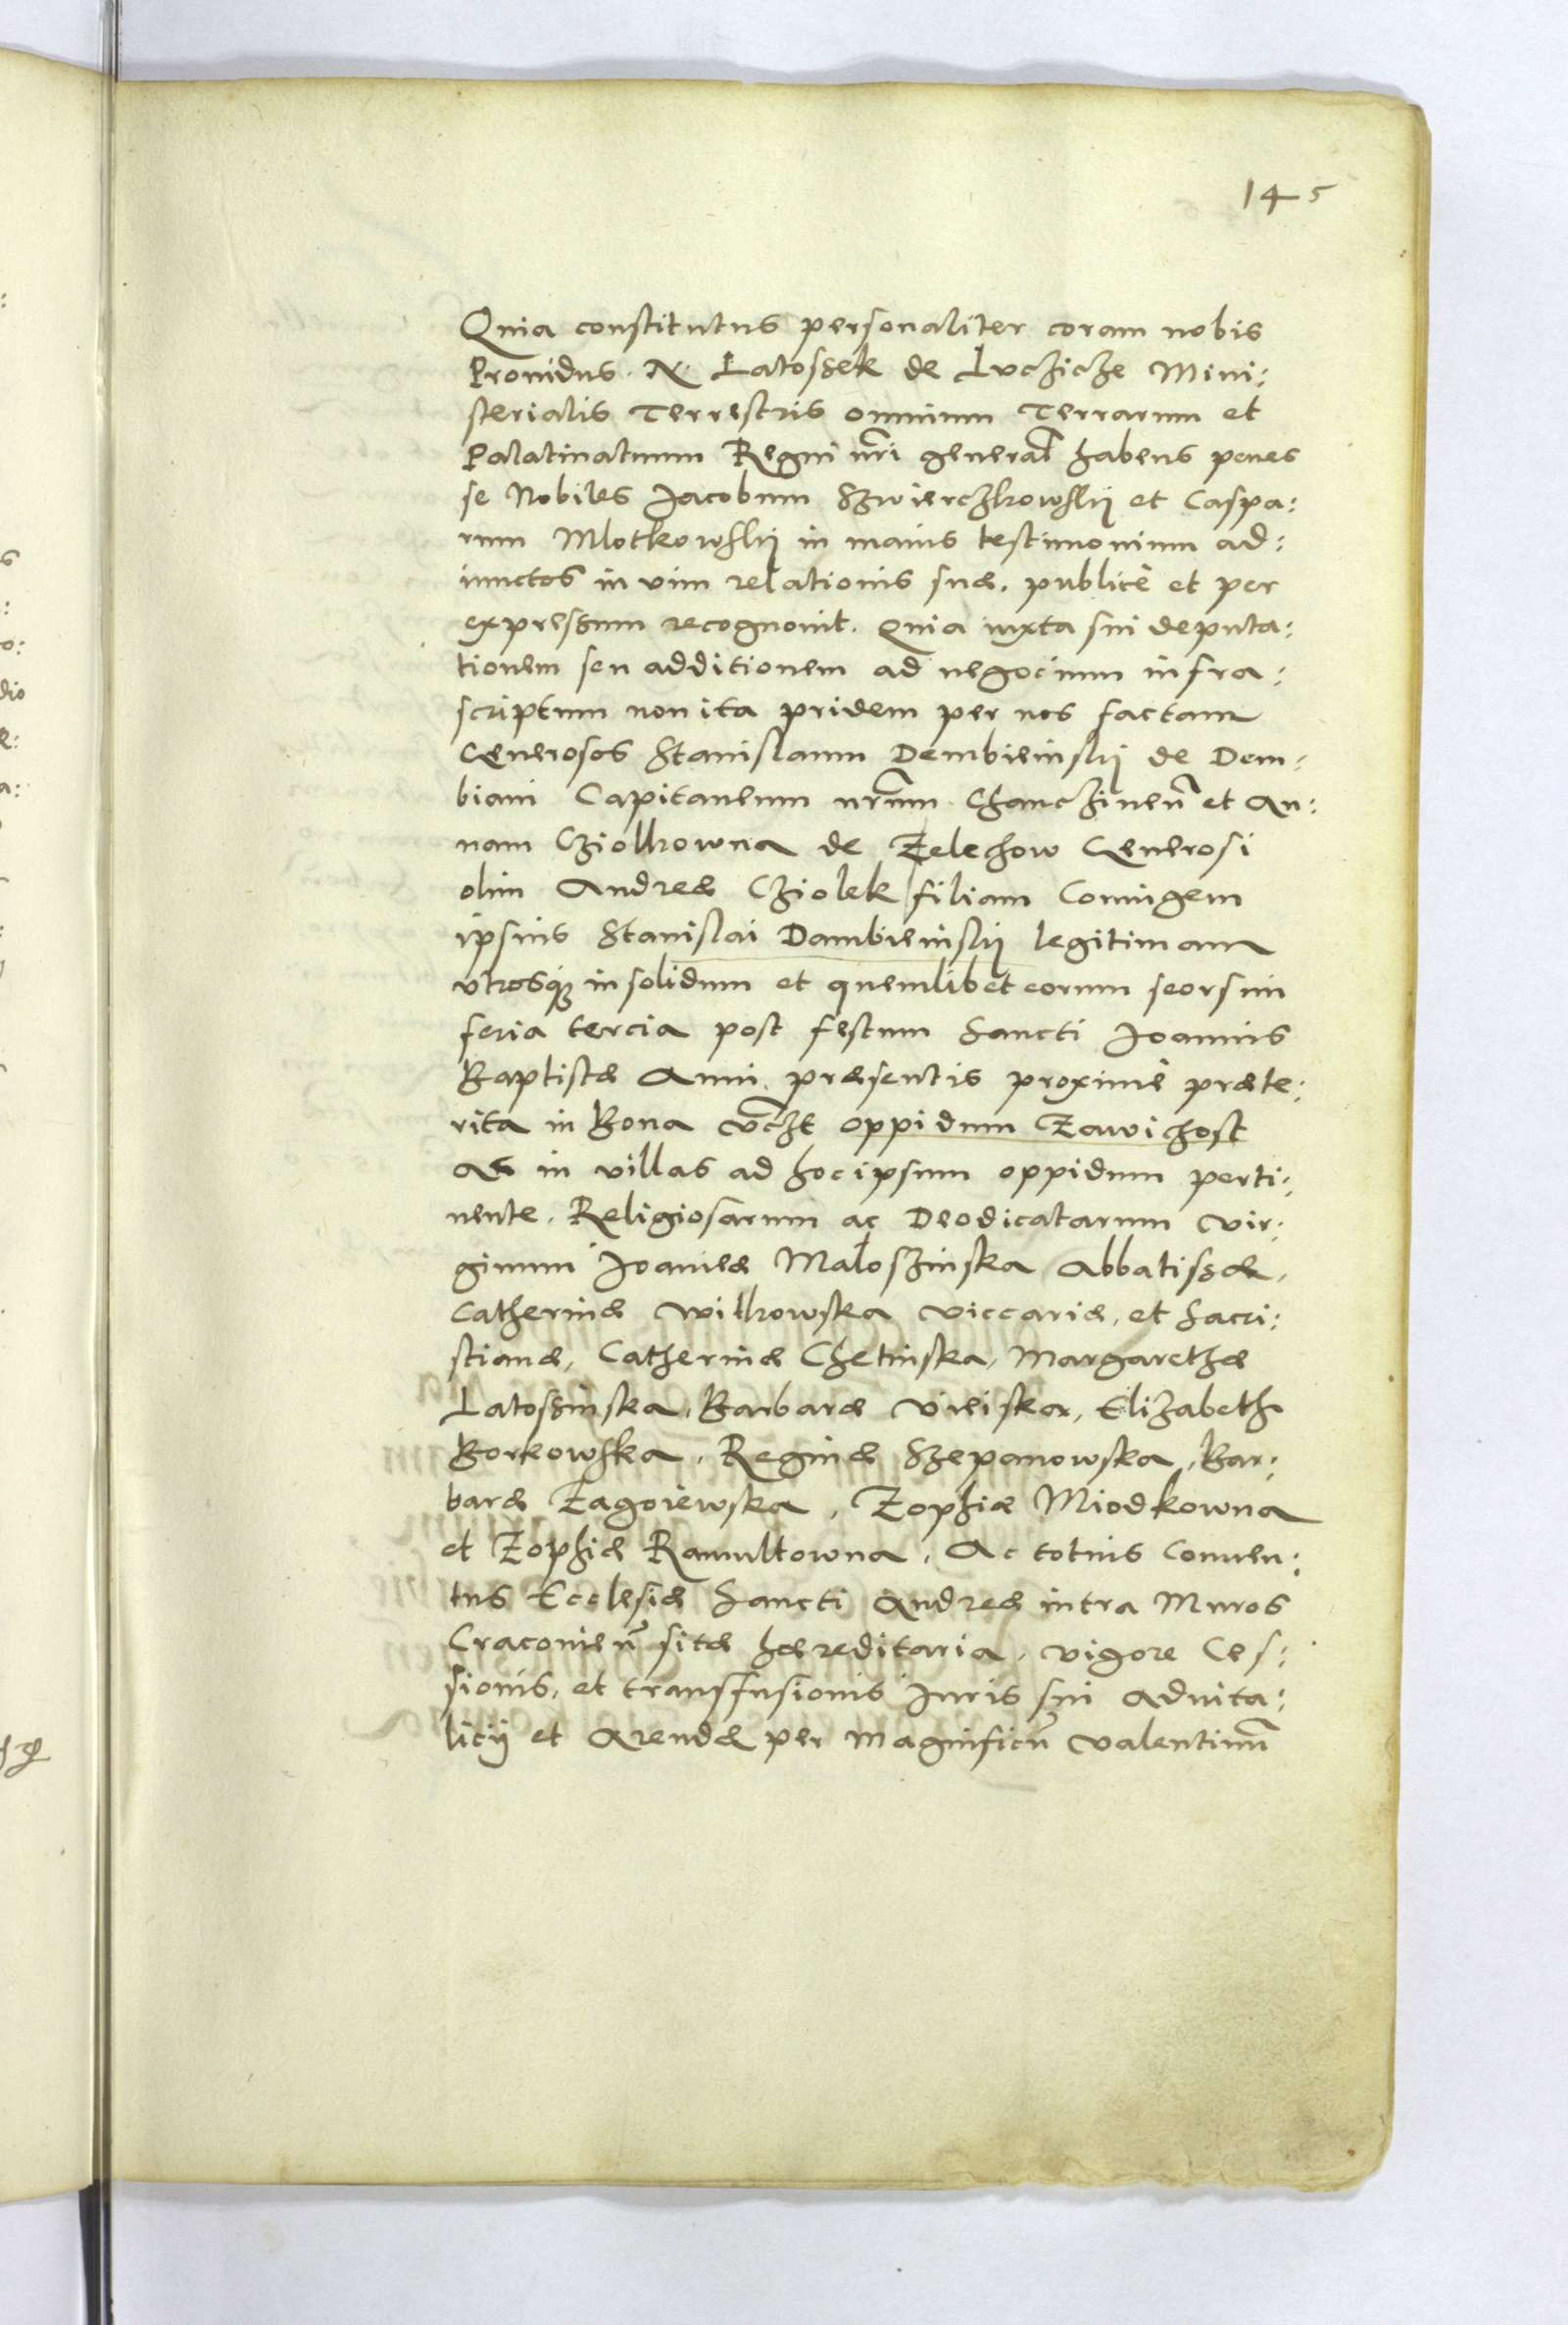 145
Quia constitutus personaliter coram nobis
Prouidus N. Latossek de Luczicze Mini:
sterialis Terrestris omnium Terrarum et
Palatinatuum Regni nr̄i general̄ habens penes
se Nobiles Jacobum Szwierczkowskij et Caspa:
rum Mlotkowskij in maius testimonium ad:
iunctos in vim relationis suæ, publicè et per
expressum recognouit. Quia iuxta sui deputa:
tionem seu additionem ad negocium infra:
scriptum non ita pridem per nos factam
Generosos Stanislaum Dembieinskij de Dem:
biani Capitaneum nrm̄ Chanczinen̄ et An:
nam Cziolkowna de Zelechow Generosi
olim Andreæ Cziolek filiam Coniugem
ipsius Stanislai Dambieinskij legitimam
vtrosq₃ in solidum et quemlibet eorum seorsim
feria tercia post festum Sancti Joannis
Baptistæ Anni præsentis proximè præte:
rita in Bona vcz̄t oppidum Zawichost
ac in villas ad hoc ipsum oppidum perti:
nente, Religiosarum ac Deodicatarum vir:
ginum Joannæ Małoszinska Abbatissæ,
Catherinæ Wilkowska Viccariæ, et Sacri:
stianæ, Catherinæ Chetinska, Margarethæ
Latossinska, Barbaræ Vireiska, Elizabeth
Borkowska, Reginæ Szepanowska, Bar:
baræ Zagoiewska, Zophiæ Miodkowna
et Zophiæ Ramultowna, Ac totius Conuen:
tus Ecclesiæ Sancti Andreæ intra Muros
Cracouien̄ sitæ hæreditaria, vigore Ces:
sionis, et transfusionis Juris sui aduita:
licij et Arendæ per Magnificū Valentinū